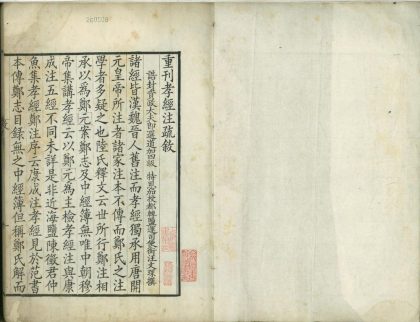 重刊孝經注疏敘
諸經皆漢魏晉人舊注而孝經獨承用唐開
元皇帝所注者諸家注本不傳而鄭氏之注
學者多疑之也陸氏釋文云世所行鄭注相
承以為鄭元案鄭志及中經簿無唯中朝穆
帝集講孝經云以鄭元為主檢孝經注與康
成注五經不同未詳是非近海鹽陳徵君仲
魚集孝經鄭注序云康成注孝經見於范書
本傳鄭志目錄無之中經簿但稱鄭氏解而